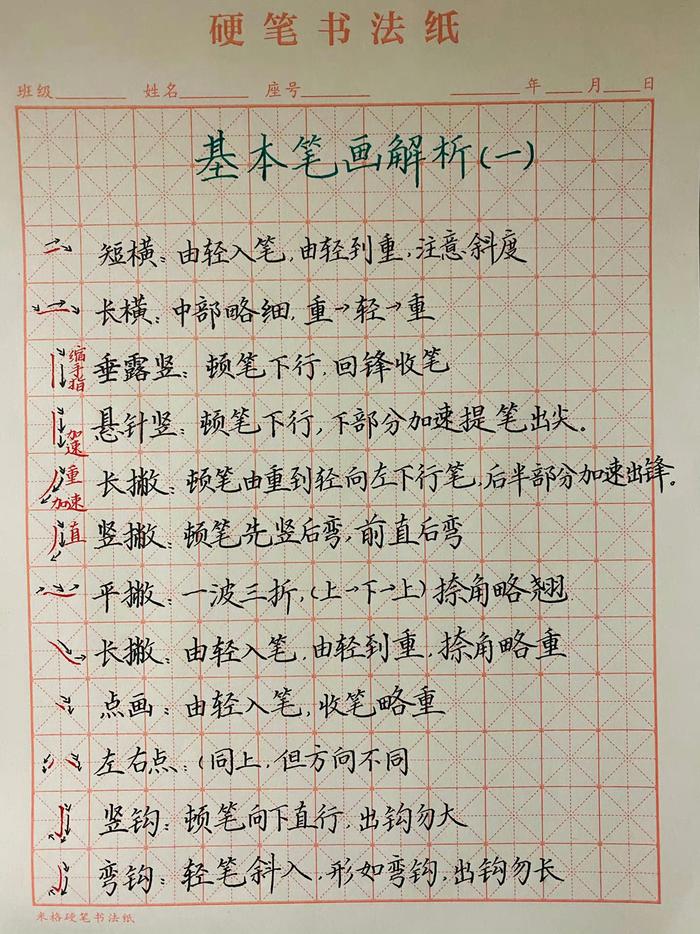 硬笔书法纸
班级 姓名 座号 年 月 日
基本笔画解析(一)
短横：由轻入笔,由轻到重,注意斜度
长横：中部略细,重→轻→重
缩手指 垂露竖：顿笔下行,回锋收笔
加速 悬针竖：顿笔下行,下部分加速提笔出尖。
重 加速 长撇：顿笔由重到轻向左下行笔,后半部分加速出锋。
直 竖撇：顿笔先竖后弯,前直后弯
平撇：一波三折,(上→下→上)捺角略翘
长撇：由轻入笔,由轻到重,捺角略重
点画：由轻入笔,收笔略重
左右点：(同上,但方向不同
竖钩：顿笔向下直行,出钩勿大
弯钩：轻笔斜入,形如弯钩,出钩勿长
米格硬笔书法纸